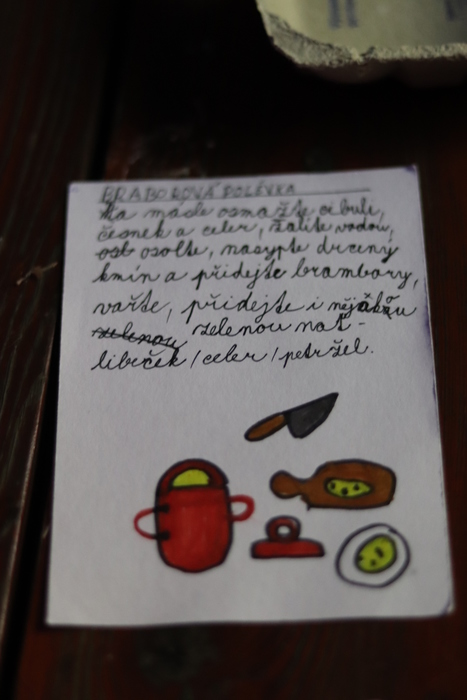 BRABOROVÁ POLÉVKA
Na másle osmažte cibuli,
česnek a celer, zalite vodou,
osolte, nasypte drcený
kmín a přidejte brambory,
vařte, přidejte i nějakou
zelenou zelenou nať -
libeček / celer / petržel.